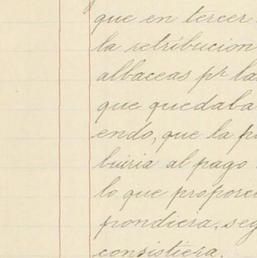 que en tercer
la retribucion
albaceas pr la
que quedaba
endo, que la p
buiria al pago
lo que proporci
pondiera, seg
consistiera.